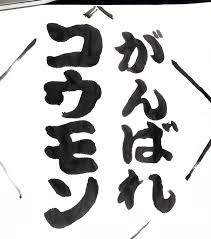 がんばれ
コウモン